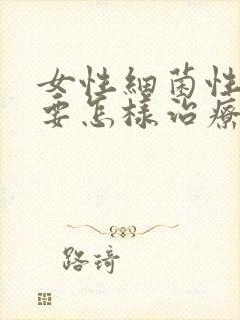 女性細菌性
要怎樣治療
路琦